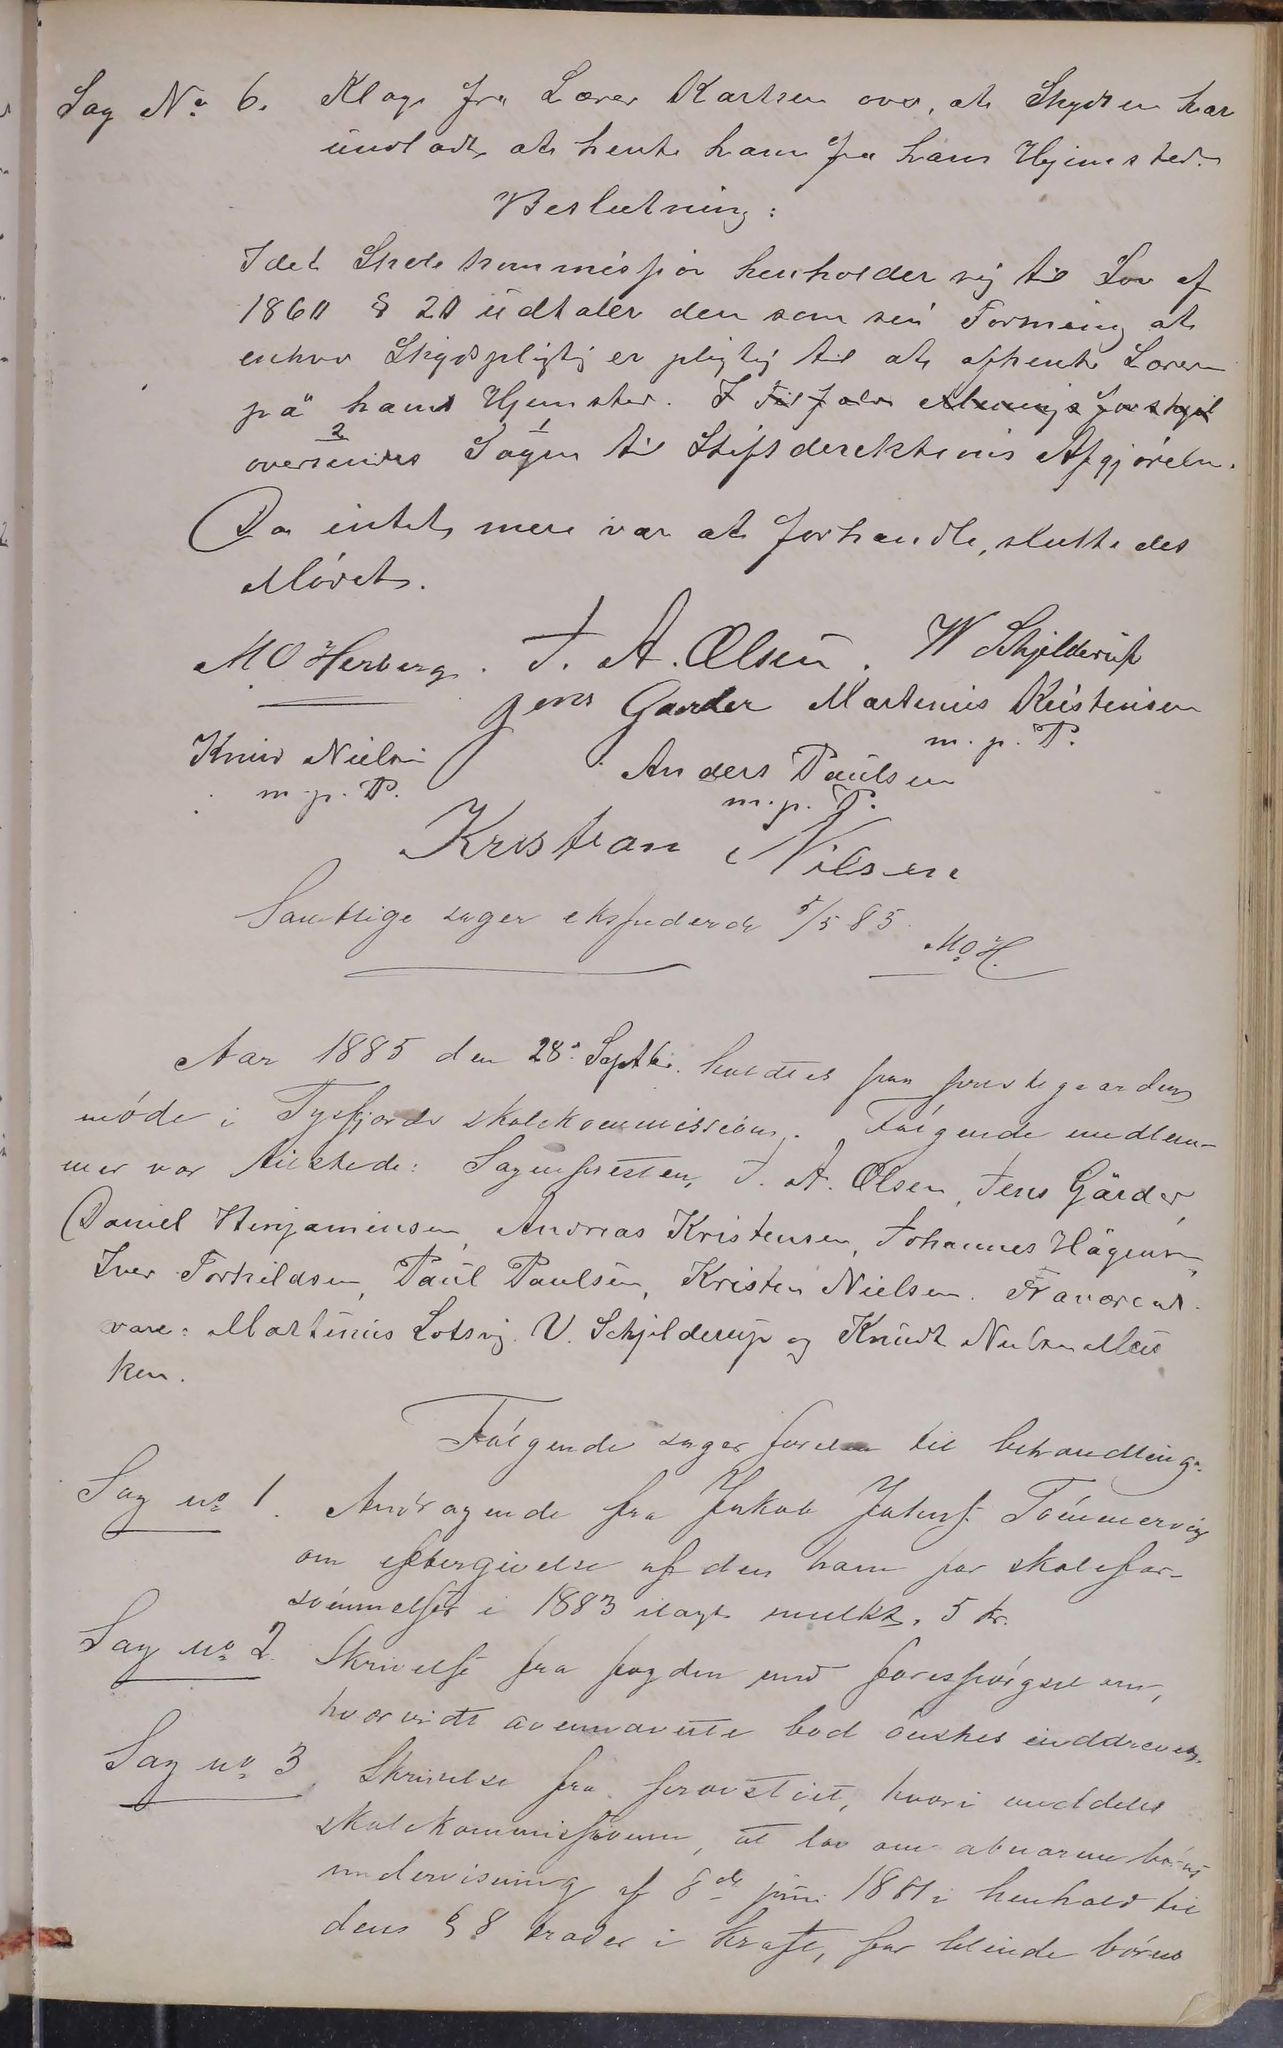 Sag No 6. Klage fra Lærer Karlsen over, at Skydsen har
undladt at hente ham fra hans Hjemsted.
Beslutning:
Idet Skolekommissjon henholder sig til Lov af
1860 § 20 udtaler den som sin Formening at
enhver Skydspligtig er pligtig til at afhente Læreren
på hans Hjemsted. I Tilfælde Meningsforskjel
2 1
oversendes Sagen til Stiftsdirektionens Afgjørelse.
Da intet mere var at forhandle, sluttedes
Mødet.
M O Herberg. J. A. Olsen. W Schjelderup
Jens Garder Martinus Kristensen
m. p. P.
Knud Nielsen Anders Paulsen
m. p. P. m. p. P.
Kristian Nilsen
Samtlige sager ekspederede 5/5 85.
M O H.
Aar 1885 den 28de Septbr. holdtes paa prestegaarden
møde i Tysfjords skolekommission. Følgende medlem-
mer var tilstede: Sognepresten, J. A. Olsen, Jens Gårder,
Daniel Benjaminsen, Andreas Kristensen, Johannes Hågensen,
Iver Torkildsen, Paul Paulsen, Kristen Nielsen. Fraværende
vare: Martinus Lotsvig. V. Schjelderup og Knudt Nielsen Mus
ken.
Følgende sager forelaa til behandling.
Sag no 1. Andragende fra Jakob Jakobs. Tømmervig
om eftergivelse af den ham for skolefor-
sømmelser i 1883 ilagte mulkt, 5 kr.
Sag no 2. Skrivelse fra fogden med forespørgsel om,
hvorvidt ovennævnte bod ønskes inddreven.
Sag no 3. Skrivelse fra provstiet, hvori meddeles
skolekommissionen, at lov om abnorme børns
undervisning af 8de juni 1881 i henhold til
dens § 8 træder i kraft, for blinde børns